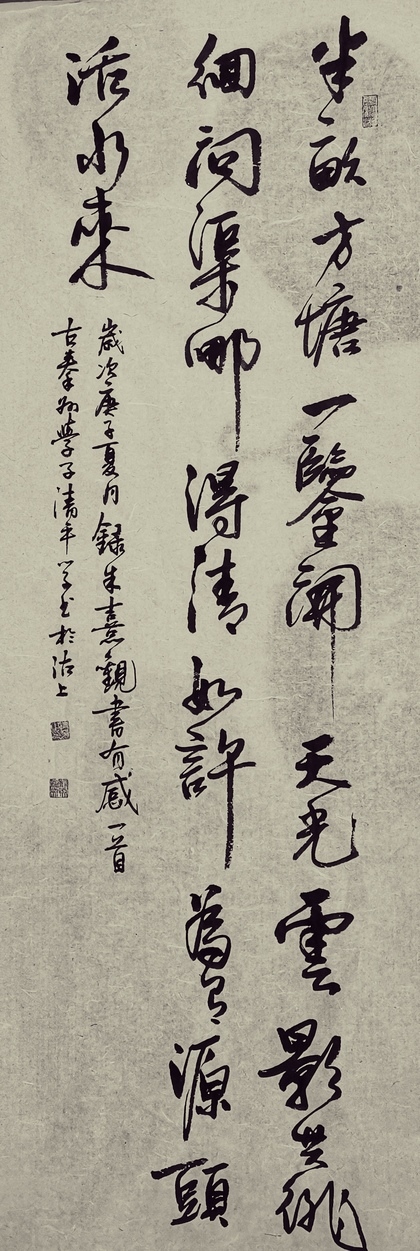 半畝方塘一鑒開天光雲影共徘
徊問渠哪得清如許為有源頭
活水來
歲次庚子夏月錄朱熹觀書有感一首
古學子清於沽上